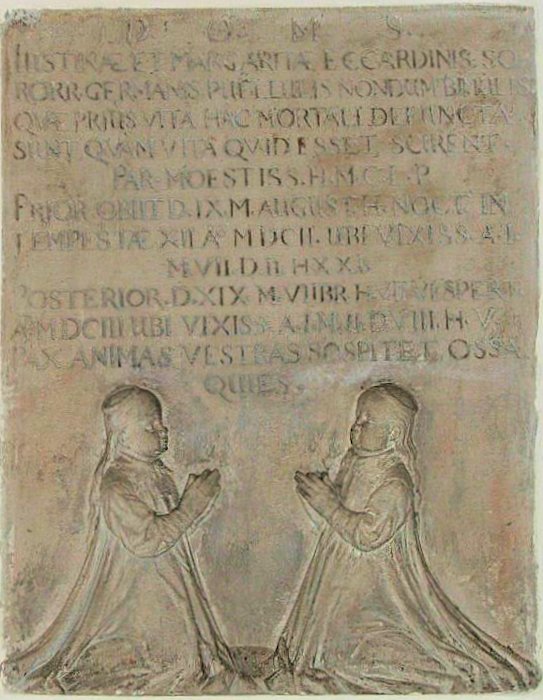 D O M S
IUSTINAE ET MARGARITAE ECCARDINIS SO
RORR. GERMANIS PUELLULIS NONDUM BIMULIS
QUAE PRIUS VITA HAC MORTALI DEFUNCTAE
SUNT QUAM VITA QUID ESSET, SCIRENT.
PAR. MOESTISS. H. M. C. L. P
PRIOR OBIIT D. IX. M. AUGUST. H. NOCT. IN
TEMPESTAE XII A° MDCII. UBI VIXISS. A. I.
M. VII. D. II. H X X B
POSTERIOR. D. XIX. M. VIIBR H. VESPERT
A° MDCIII UBI VIXISS. A. I. M. II. D. VIII. H. V.
PAX ANIMAS VESTRAS SOSPITET, OSSA
QUIES.